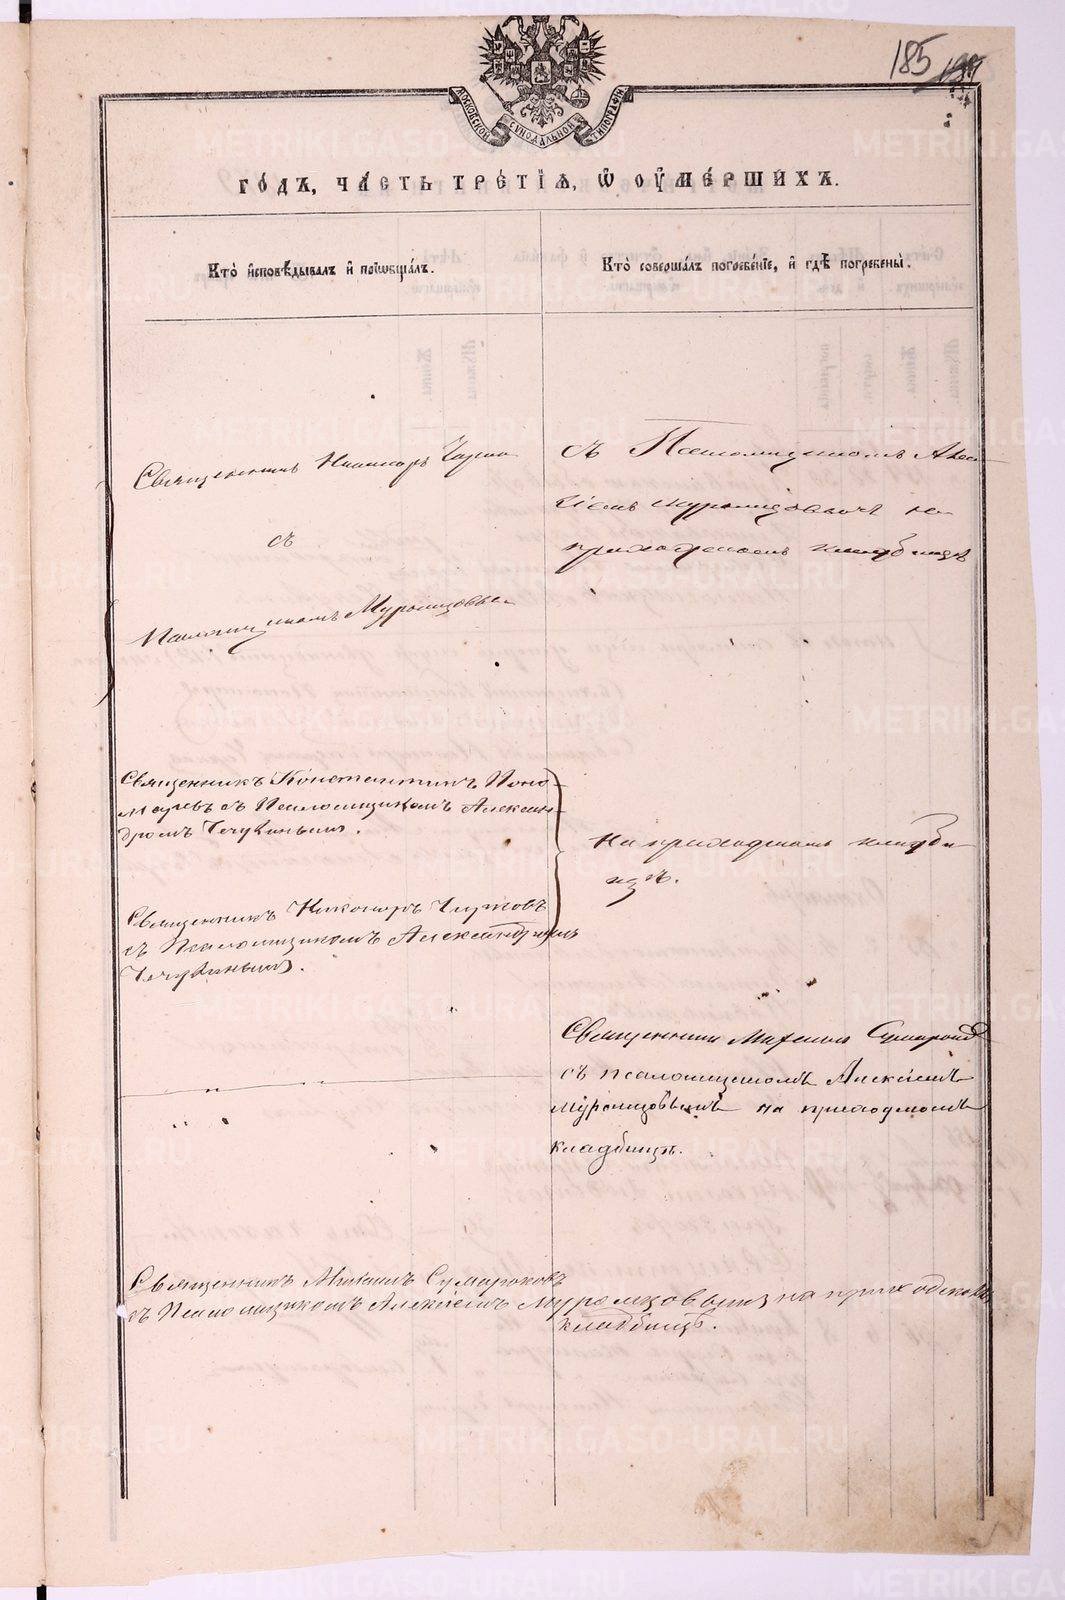 185
МОСКОВСКОЙ СУНОДАЛЬНОЙ ТИПОГРАФІИ
ГО́ДЪ, ЧА́СТЬ ТРЕ́ТІѦ, Ѡ҆ ОУ҆МЕ́РШИХЪ.
Кто̀ и҆сповѣ́дывалъ и҆ пріѡбща́лъ.
Кто̀ соверша́лъ погребе́ніе, и҆ гдѣ̀ погребены̀.
Священникъ Никаноръ
съ
Псаломщикомъ Муромцовы
съ Псаломщикомъ Алек
сѣемъ Муромцовымъ на
приходскомъ кладбищѣ
Священникъ Константинъ Поно-
маревъ съ Псаломщикомъ Алексан-
дромъ Чечулинымъ.
на приходскомъ кладби
щѣ.
Священникъ Никаноръ
съ Псаломщикомъ Александромъ
Чечулинымъ.
Священникъ Михаилъ Сумароковъ
съ псаломщикомъ Алексѣемъ
Муромцовымъ на приходскомъ
кладбищѣ.
Священникъ Михаилъ Сумароковъ
съ Псаломщикомъ Алексѣемъ Муромцовымъ на приходскомъ
кладбищѣ.
METRIKI.GASO-URAL.RU